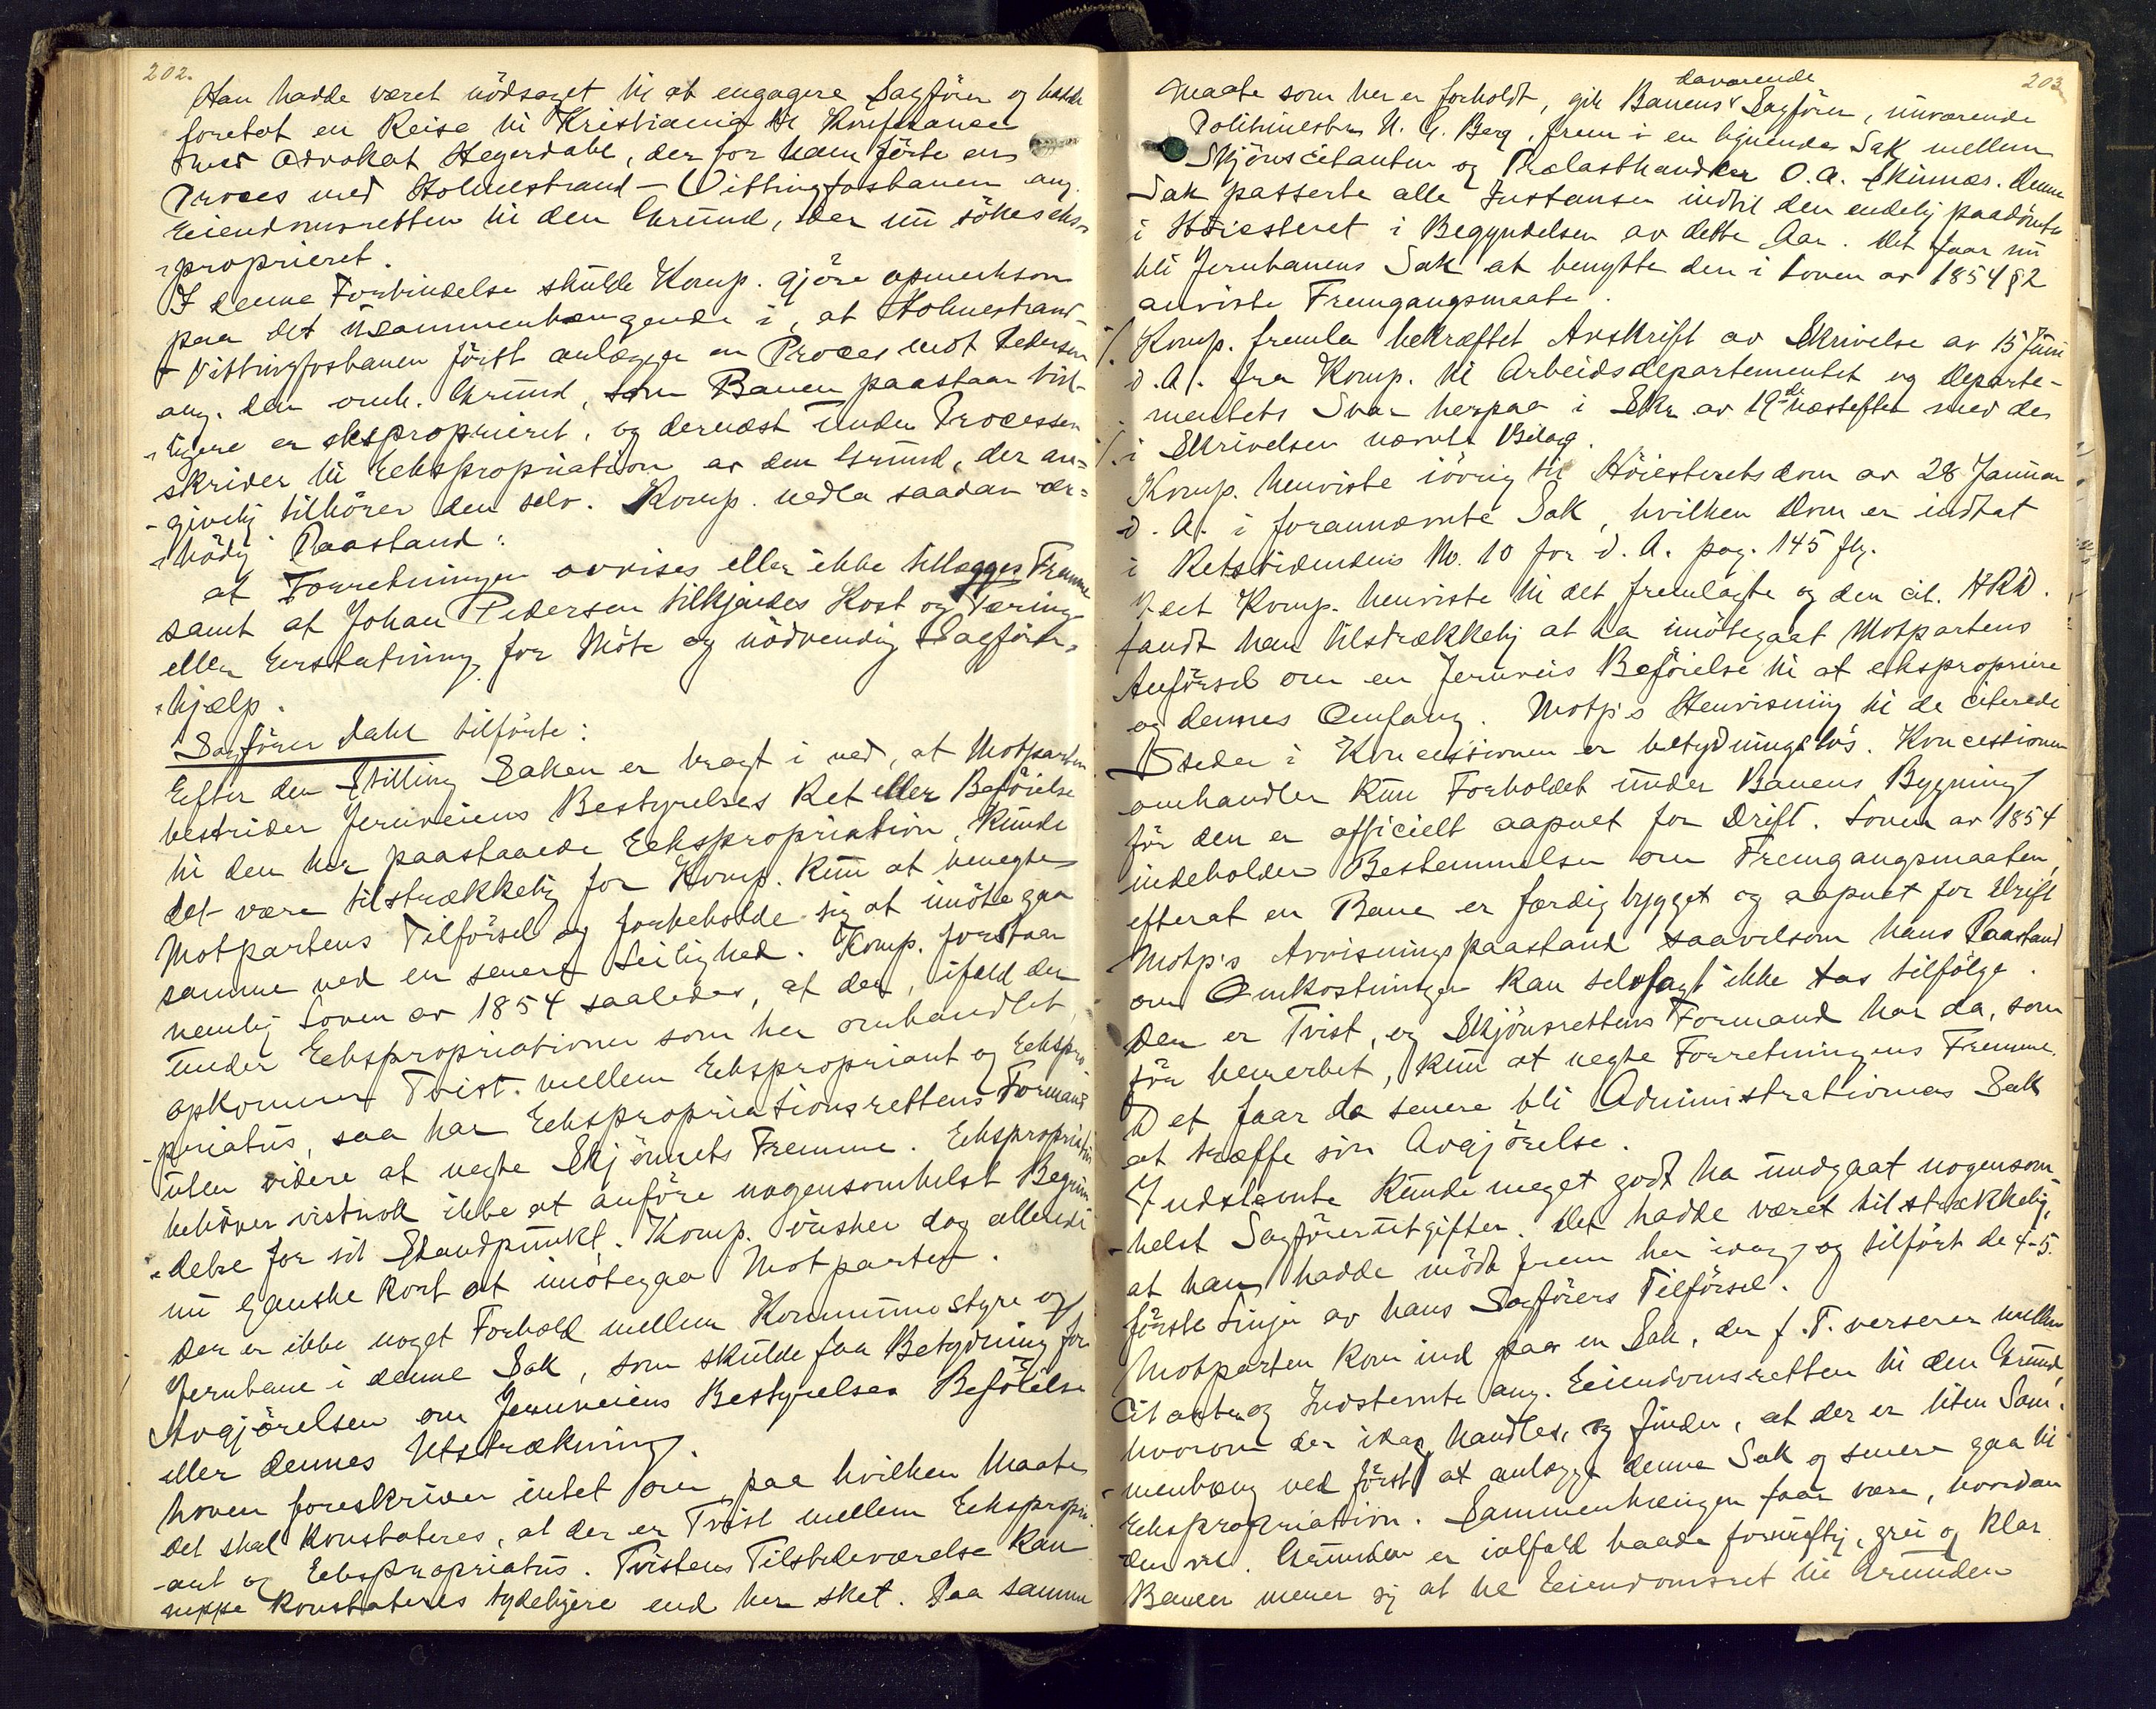 202.
Han hadde været nödsaget til at engagere Sagförer og hadde
foretat en Reise til Kristiania til Konferanse
med Advokat Hegerdahl, der for ham förte en
Proces med Holmestrand - Vittingfosbanen ang.
Eiendomsretten til den Grund, der nu sökes eks-
-proprieret.
I denne Forbindelse skulde Komp. gjöre opmerksom
paa det usammenhængende i, at Holmestrand
- Vittingfosbanen först anlægger en Proces mot Pedersen
ang. den omh. Grund, som Banen paastaar tid-
-ligere er eksproprieret, og dernæst under Processen
skrider til Ekspropriation av den Grund, der an-
-givelig tilhörer den selv. Komp. nedla saadan ær-
-bödig Paastand:
at Forretningen avvises eller ikke tillægges Fremme
samt at Johan Pedersen tilkjendes Kost og Tæring
eller Erstatning for Möte og nödvendig Sagförer-
-hjælp.
Sagförer Dahl tilförte:
Efter den Stilling Saken er bragt i ved, at Motparten
bestrider Jernveiens Bestyrelses Ret eller Beföielse
til den her paastaaede Ekspropriation, kunde
det være tilstrækkelig for Komp. kun at benegte
Motpartens Tilförsel og forbeholde sig at imötegaa
samme ved en senere Leilighed. Komp. forstaar
nemlig Loven av 1854 saaledes, at der, ifald der
under Ekspropriationer som her omhandlet,
opkommer Tvist mellem Ekspropriant og Ekspro-
-priatus, saa har Ekspropriationsrettens Formand
uten videre at negte Skjönnets Fremme. Ekspropriatus
behöver vistnok ikke at anföre nogensomhelst Begrun
-delse for sit Standpunkt. Komp. önsker dog allerede
nu ganske kort at imötegaa Motparten.
Der er ikke noget Forhold mellem Kommunestyre og
Jernbane i denne Sak, som skulde faa Betydning for
Avgjörelsen om Jernveiens Bestyrelses Beföielse
eller dennes Utstrækning.
Loven foreskriver intet om, paa hvilken Maate
det skal konstateres, at der er Tvist mellem Ekspropri-
-ant og Ekspropriatus. Tvistens Tilstedeværelse kan
neppe konstateres tydeligere end her sket. Paa samme
203
daværende
Maate som her er forholdt, gik Banens Sagförer, nuværende
Politimester N. G. Berg, frem i en lignende Sak mellem
Skjönscitanten og Trælasthandler O. A. Skinnes. Denne
Sak passerte alle Instanser indtil den endelig paadömtes
i Höiesteret i Begyndelsen av dette Aar. Det faar nu
bli Jernbanens Sak at benytte den i Loven av 1854 § 2
anviste Fremgangsmaate.
./. Komp. fremla bekræftet Avskrift av Skrivelse av 15 Juni
d.A. fra Komp. til Arbeidsdepartementet og Departe-
-mentets Svar herpaa i Skr. av 19de næstefter med de
./. i Skrivelsen nævnte Bilag.
Komp. henviste iövrig til Höiesteretsdom av 28 Januar
d. A. i forannævnte Sak, hvilken Dom er indtat
i Retstidendens No. 10 for d. A. pag. 145 flg.
Idet Komp. henviste til det fremlagte og den cit. HRD.
fandt han tilstrækkelig at ha imötegaat Motpartens
Anförsel om en Jernveis Beföielse til at ekspropriere
og dennes Omfang. Motp's Henvisning til de citerede
Steder i Koncessionen er betydningslös. Koncessionen
omhandler kun Forholdet under Banens Bygning
för den er officielt aapnet for Drift. Loven av 1854
indeholder Bestemmelser om Fremgangsmaaten,
efterat en Bane er færdig bygget og aapnet for Drift
Motp's Avvisningspaastand saavelsom hans Paastand
om Omkostninger kan selvsagt ikke tas tilfölge.
Der er Tvist, og Skjönsrettens Formand har da, som
för bemerket, kun at negte Forretningens Fremme.
Det faar da senere bli Administrationens Sak
at træffe sin Avgjörelse.
Indstevnte kunde meget godt ha undgaat nogensom-
-helst Sagförerutgifter. Det hadde været tilstrækkelig,
at han hadde mödt frem her idag og tilfört de 4-5
förste Linjer av hans Sagförers Tilförsel.
Motparten kom ind paa en Sak, der f. T. verserer mellem
Citanten og Indstevnte ang. Eiendomsretten til den Grund,
hvorom der idag handles, og finder, at der er liten Sam-
-menhæng ved först at anlægge denne Sak og senere gaa til
Ekspropriation. Sammenhængen faar være, hvordan
den vil. Grunden er ialfald baade fornuftig, grei og klar
Banen mener sig at ha Eiendomsret til Grunden